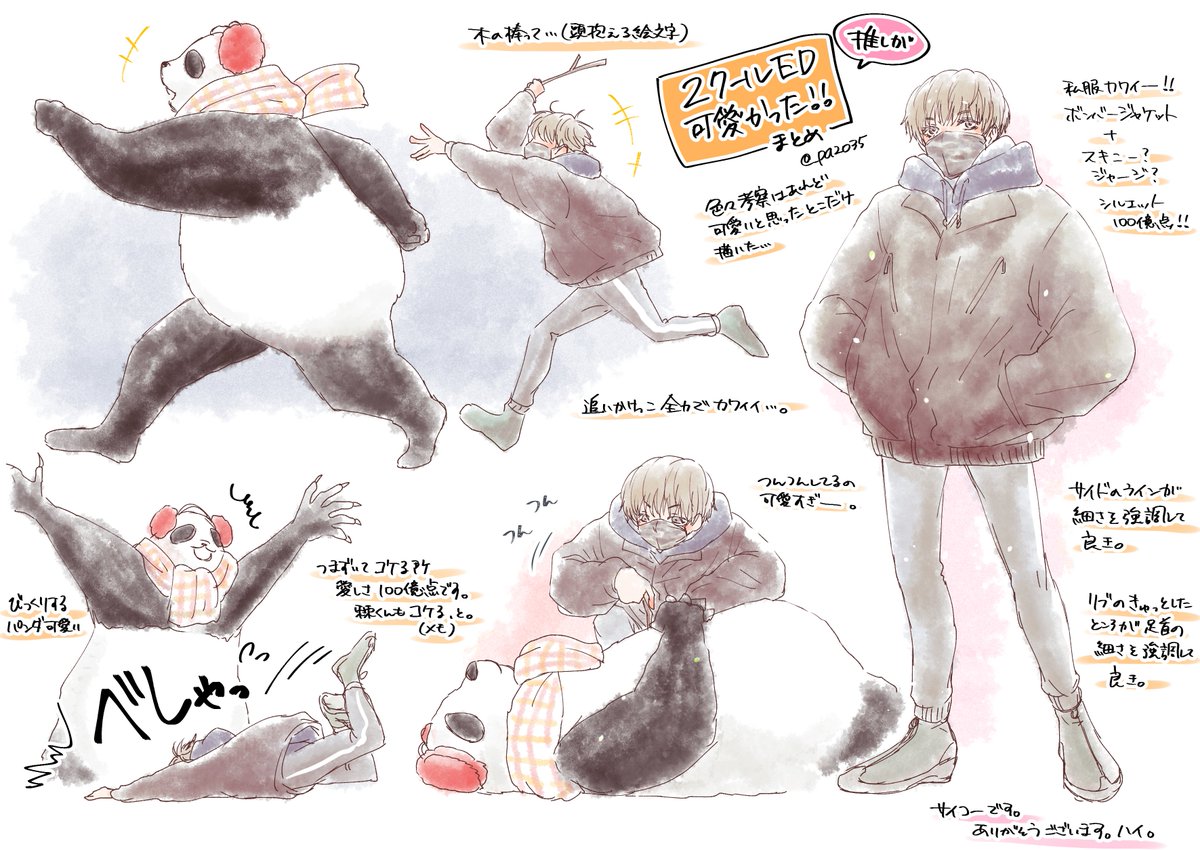 木の棒って…(頭抱える絵文字)
推しが
2クールED
可愛かった!!
まとめ
@pa2035
色々考察はあれど
可愛いと思ったとこだけ
描いた…
私服カワイー!!
ボンバージャケット
+
スキニー?
ジャージ?
シルエット
100億点!!
追いかけっこ全力でカワイイ…。
つん
つん
つん
つんつんしてるの
可愛すぎー。
サイドのラインが
細さを強調して
良き。
リブのきゅっとした
ところが足首の
細さを強調して
良き。
びっくりする
パンダ可愛い
つまずいてコケる所
愛しさ100億点です。
棘くんもコケる、と。
(メモ)
べしゃっ
サイコーです。
ありがとうございます。ハイ。